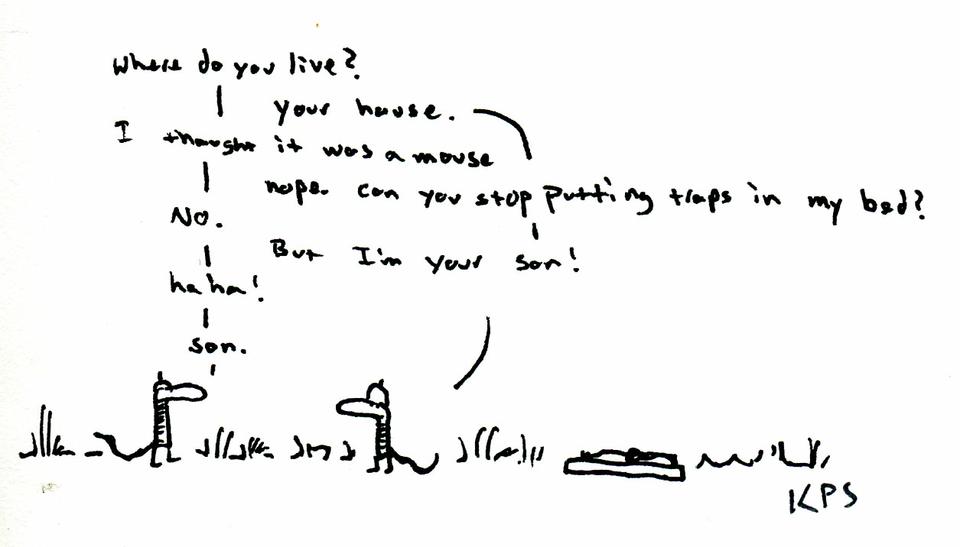 Where do you live?
Your house.
I thought it was a mouse
nope. can you stop putting traps in my bed?
No.
But I'm your son!
haha!
son.
KPS